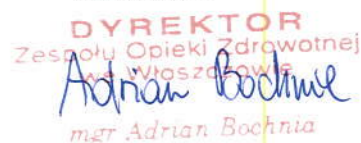 DYREKTOR
Zespołu Opieki Zdrowotnej
we Włoszczowie
Adrian Bochnia
mgr Adrian Bochnia